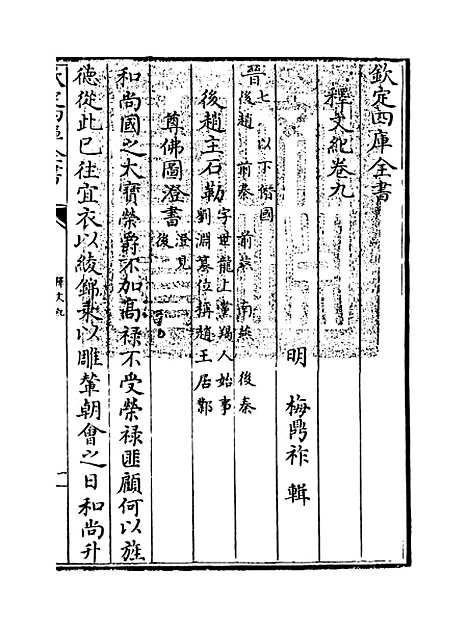 欽定四庫全書
釋文紀卷九
明 梅鼎祚 輯
晉七 以下僭國
後趙 前秦 前燕 南燕 後秦
後趙主石勒字世龍上黨羯人始事
劉淵篡位稱趙王居鄴
尊佛圖澄書澄見
後
和尚國之大寶榮爵不加高祿不受榮祿匪顧何以旌
德從此已往宜衣以綾錦乘以雕輦朝會之日和尚升
欽定四庫全書
釋文紀